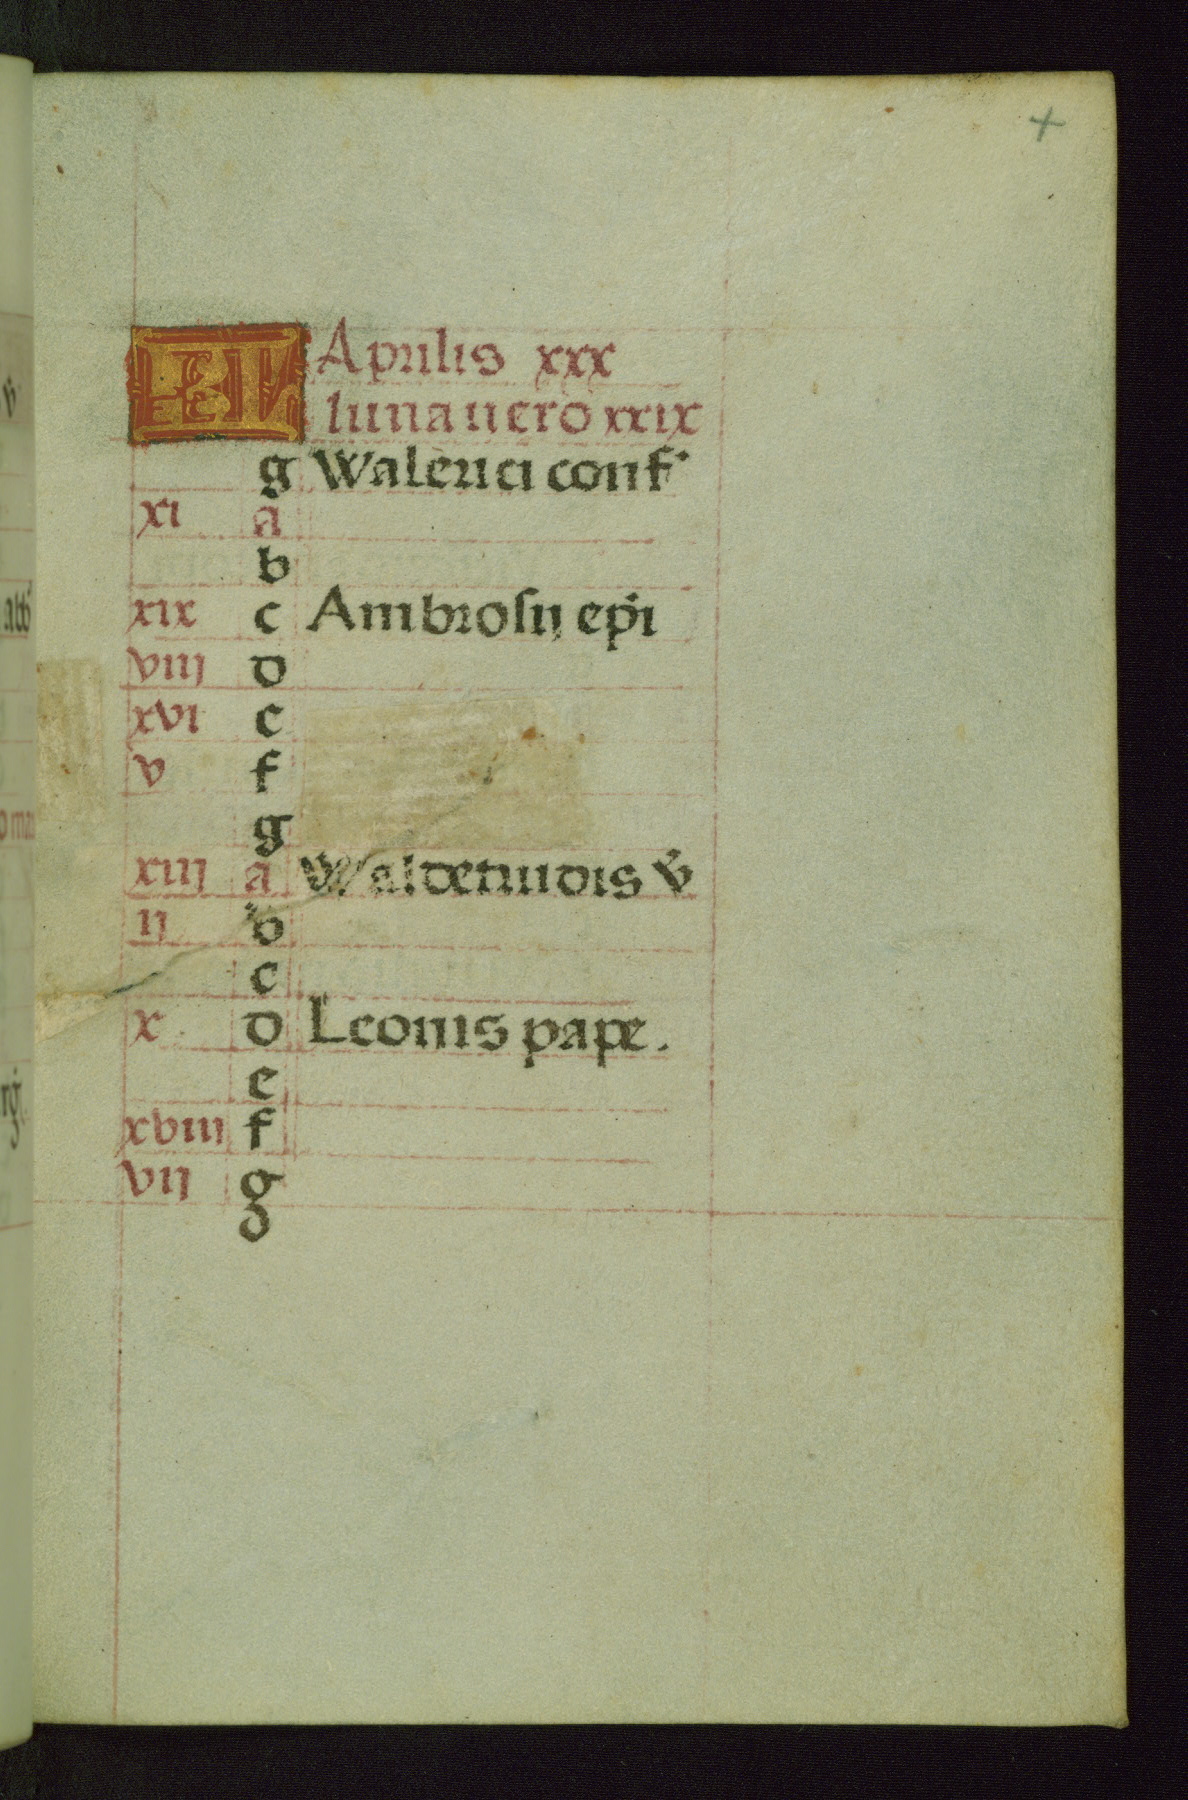 KL Aprilis xxx
luna uero xxix
g Walerici conf
xi a
b
xix c Ambrosij epi
viij d
xvi e
v f
g
xiij a Waldetrudis v
ij b
c
x d Leonis pape.
e
xviij f
vij g